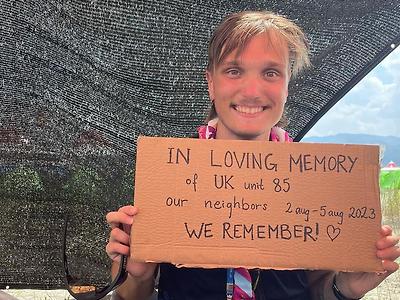 IN LOVING MEMORY
of UK unit 85
our neighbors 2 aug - 5 aug 2023
WE REMEMBER! ♡